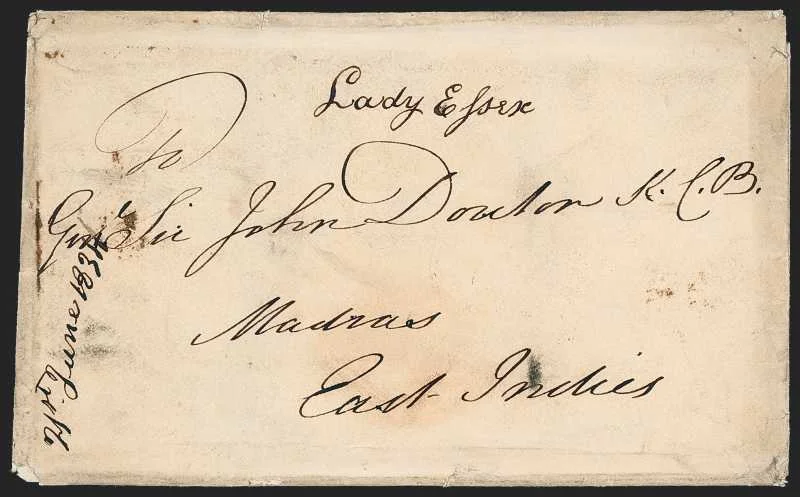 Lady Essex
To
Genl Sir John Doveton K.C.B.
Madras
East Indies
June 1834